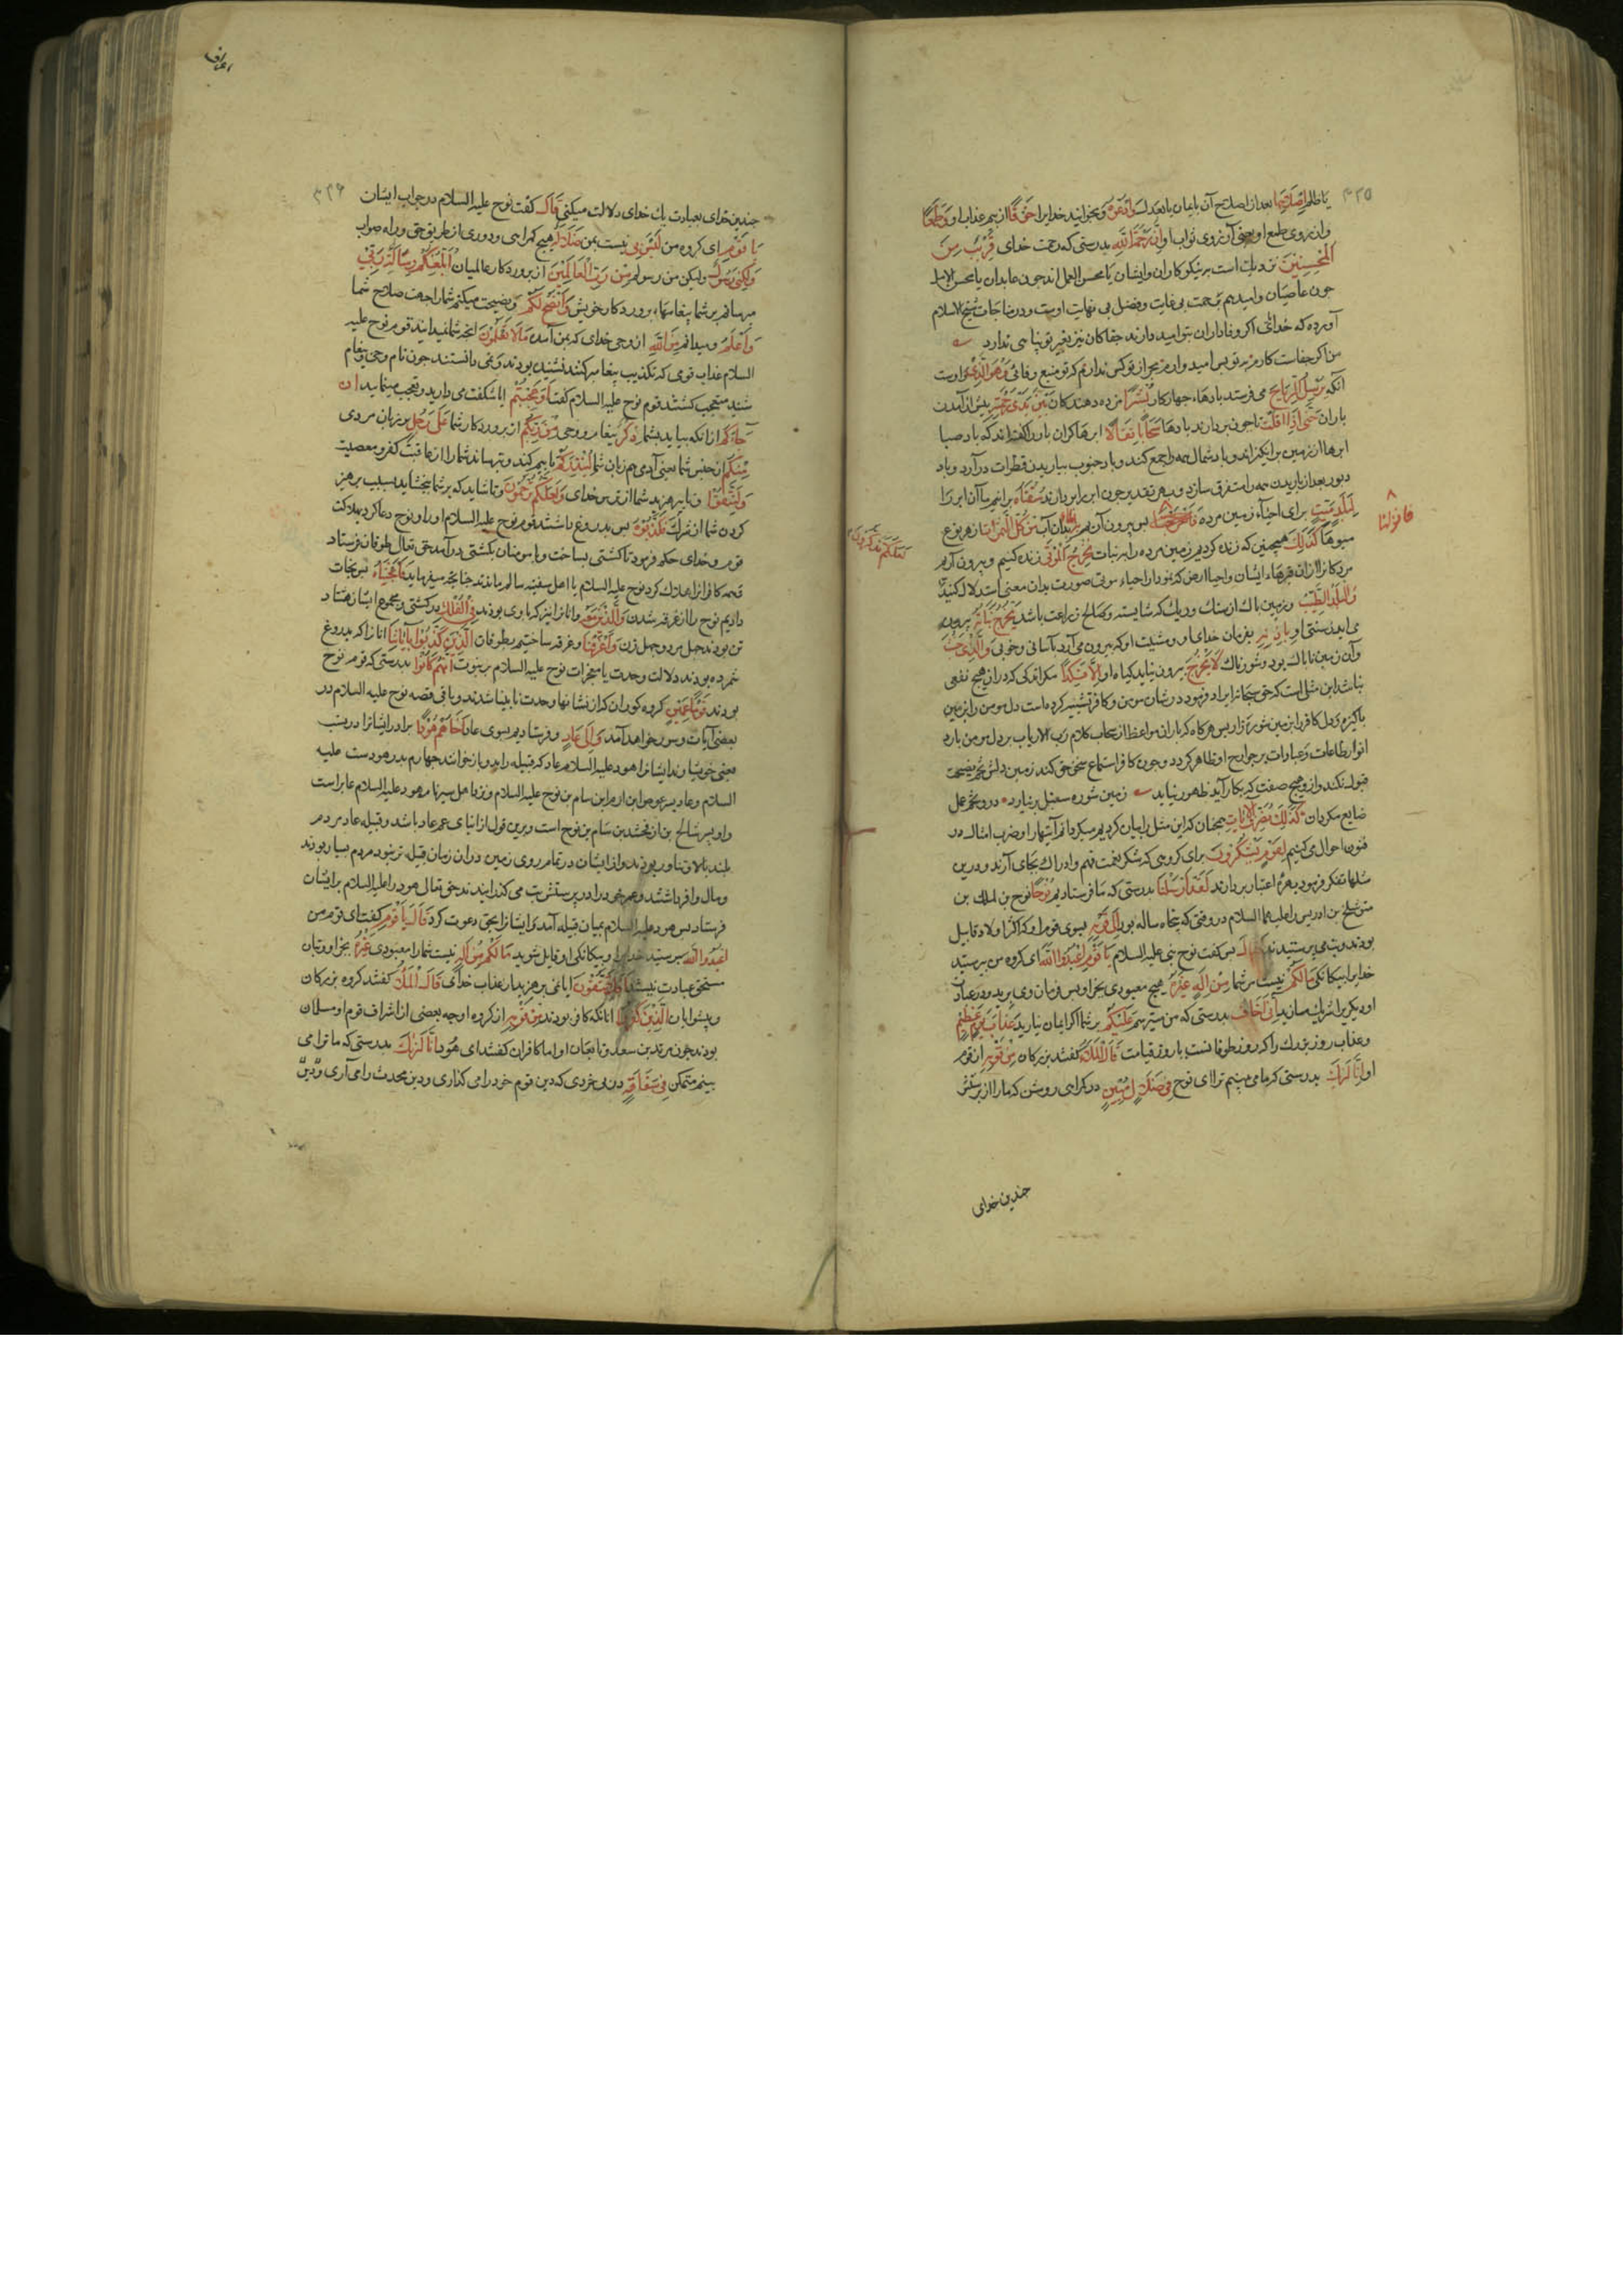 ۳۲۵
یا ظلم اصلاحها بعد از اصلاح آن بایمان یا بعدل وادعوه و بخوانید خدایرا خوفا از بیم عذاب او وطمعا
و از روی طمع او یعنی آرزوی ثواب او ان رحمة الله بدرستی که رحمت خدای قریب من
المحسنین نزدیک است بر نیکوکاران و ایشان یا محسن العمل اند چون عابدان یا محسن الامل
چون عاصیان و امیدیم برحمت بی غایت و فضل بی نهایت اوست و در مناجات شیخ الاسلام
آورده که خدایا اگر وفاداران بتو امید دارند جفاکاران نیز بغیر تو پناهی ندارد
من اگر جفاست کارم بر تو بس امیدوارم بجز از تو کس ندارم که تو منبع وفائی وهو الذی و اوست
آنکه یرسل الریاح می فرستد بادهاء چهارکان بشرا مژده دهندکان بین یدی رحمته پیش از آمدن
باران حتی اذا اقلت تا چون بردارند بادها سحابا ثقالا ابرها کران بار را گفته‌اند که باد صبا
ابرها از زمین برانکیزاند و باد شمال همه را جمع کند و باد جنوب بباریدن قطرات درآرد و باد
دبور بعد از باریدن همه را متفرق سازد و بهر تقدیر چون ابر را بردارند سقناه برانیم ما آن ابر را
لبلد میت برای احیاء زمین مرده فاخرجنا پس بیرون آریم به بدان آب من کل الثمرات از هر نوع
فانزلنا
میوها کذلک همچنین که زنده کردیم زمین مرده را به نبات نخرج الموتی زنده کنیم و بیرون آریم
لعلکم تذکرون
مردکانرا از ان قبرهاء ایشان و احیاء ارض که نمودار احیاء موتی صورت بدان معنی است دلال کنید
والبلد الطیب و زمین پاک از سنک و ریک که شایسته و صالح زراعت باشد یخرج نباته بیرون
می آید رستنی او باذن ربه بفرمان خدای او و مشیت او که بیرون می آرد بآسانی و خوبی والذی خبث
و آن زمین ناپاک بود و شورناک لا یخرج بیرون نیاید کیاه او الا نکدا مکر اندکی که در ان هیچ نفعی
نباشد این مثل است که حق سبحانه ایراد فرمود در شان مومن و کافر تشبیه کرده است دل مومن را بزمین
پاکیزه و دل کافر را بزمین شوره‌زار پس هرکاه که باران مواعظ از سحاب کلام رب الارباب بر دل مومن بارد
انوار طاعات و عبادات بر جوارح او ظاهر کردد و چون کافر استماع سخن حق کند زمین دلش تخم نصیحت
قبول نکند و از و هیچ صفت که بکار آید ظهور نیاید زمین شوره سنبل برنیارد درو تخم عمل
ضایع مکردان کذلک نصرف الآیات همچنان که این مثل را بیان کردیم میکردانیم آیتها را و ضرب امثال در
فنون احوال می کنیم لقوم یشکرون برای کروهی که شکر نعمت فهم و ادراک بجای آرند و درین
مثلها تفکر فرموده بهره اعتبار بردارند لقد ارسلنا بدرستی که ما فرستادیم نوحا نوح بن لمک بن
متوشلخ بن ادریس را علیهما السلام در وقتی که پنجاه ساله بود الی قومه بسوی قوم او که اکثر اولاد قابیل
بودند و بت می پرستیدند فقال پس کفت نوح نبی علیه السلام یا قوم اعبدوا الله ای کروه من بپرستید
خدایرا بیکانکی مالکم نیست مر شما را من اله غیره هیچ معبودی بجز او پس فرمان وی برید و در عبادت
او دیکریرا شریک مسازید انی اخاف بدرستی که من میترسم علیکم بر شما اکر ایمان نیارید عذاب یوم عظیم
و عذاب روز بزرک را که روز طوفانست یا روز قیامت قال الملاء کفتند بزرکان من قومه از قوم
او انا لنریک بدرستی که ما می بینیم ترا ای نوح فی ضلال مبین در کمراهی روشن که ما را از پرستش
چندین خدای
اعراف
۳۲۶
چندین خدای بعبادت یک خدای دلالت میکنی قال کفت نوح علیه السلام در جواب ایشان
یا قوم ای کروه من لیس بی نیست بمن ضلالة هیچ کمراهی و دوری از طریق حق و راه صواب
ولکنی رسول ولیکن من رسولم من رب العالمین از پروردکار عالمیان ابلغکم رسالات ربی
میرسانم بر شما پیغامهاء پروردکار خویش وانصح لکم و نصیحت میکنم شما را جهت صلاح شما
واعلم و میدانم من الله از وحی خدای که بمن آمده مالا تعلمون انچه شما نمیدانید قوم نوح علیه
السلام عذاب قومی که تکذیب پیغامبر کنند نشنیده بودند و نمی دانستند چون نام وحی و پیغام
شنیدند متعجب کشتند قوم نوح علیه السلام کفت اوعجبتم ایا شکفت می دارید و تعجب مینمایید ان
جاءکم از انکه بیاید بشما ذکر پیغام و وحی من ربکم از پروردکار شما علی رجل بر زبان مردی
منکم از جنس شما یعنی آدمی هم زبان شما لینذرکم تا بیم کند و بترساند شما را از عاقبت کفر و معصیت
ولتتقوا و تا بپرهیزید شما از ترس خدای ولعلکم ترحمون و تا شاید که بر شما ببخشاید بسبب پرهیز
کردن شما از شرک فکذبوه پس بدروغ داشتند قوم نوح علیه السلام او را و نوح دعا کرد بهلاکت
قوم و خدای حکم فرمود تا کشتی بساخت و با مومنان بکشتی درآمد حق تعالی طوفان فرستاد
همه کافرانرا هلاک کرد نوح علیه السلام با اهل سفینه سالم ماندند چنانچه میفرماید فانجیناه پس نجات
دادیم نوح را از غرقه شدن والذین معه و انانرا نیز که با وی بودند فی الفلک در کشتی و مجموع ایشان هشتاد
تن بودند چهل مرد و چهل زن واغرقنا و غرقه ساختیم بطوفان الذین کذبوا بآیاتنا انانرا که بدروغ
شمرده بودند دلالت وحدت یا معجزات نوح علیه السلام بر نبوت انهم کانوا بدرستی که قوم نوح
بودند قوما عمین کروه کوران که از نشانها وحدت نابینا شدند و باقی قصه نوح علیه السلام در
بعضی آیات و سور خواهد آمد والی عاد و فرستادیم بسوی عاد اخاهم هودا برادر ایشانرا در نسب
یعنی خویشاوند ایشانرا هود علیه السلام عاد که قبیله را بدو بازخوانند چهارم پدر هودست علیه
السلام و عاد پسر عوص ابن ارم ابن سام بن نوح علیه السلام و نزد اهل سیر نام هود علیه السلام عابر است
و او پسر شالح بن ارفخشد بن سام بن نوح است و برین قول از ابنای عم عاد باشد و قبیله عاد مردم
بلند بالا و تناور بودند و از ایشان در تمام روی زمین در ان زمان قبیله نبود مردم بسیار بودند
و مال وافر داشتند و عمر خود را در بت پرستش می کذرانیدند حق تعالی هود را علیه السلام بر ایشان
فرستاد پس هود علیه السلام بمیان قبیله آمد و ایشانرا بحق دعوت کرد قال یا قوم کفت ای قوم من
اعبدوا الله بپرستید خدایرا و بیکانکی او قایل شوید مالکم من اله نیست شما را معبودی غیره بجز او و بتان
مستحق عبادت نیستند افلا تتقون ایا نمی پرهیزید از عذاب خدای قال الملاء کفتند کروه بزرکان
و پیشوایان الذین کفروا انانکه کافر بودند من قومه از کروه او چه بعضی از اشراف قوم او مسلمان
بودند چون مرثد بن سعد و تابعان او اما کافران کفتند ای هود انا لنریک بدرستی که ما ترا می
بینم متمکن فی سفاهة در بی خردی که دین قوم خود را می کذاری و دین محدث را می آری